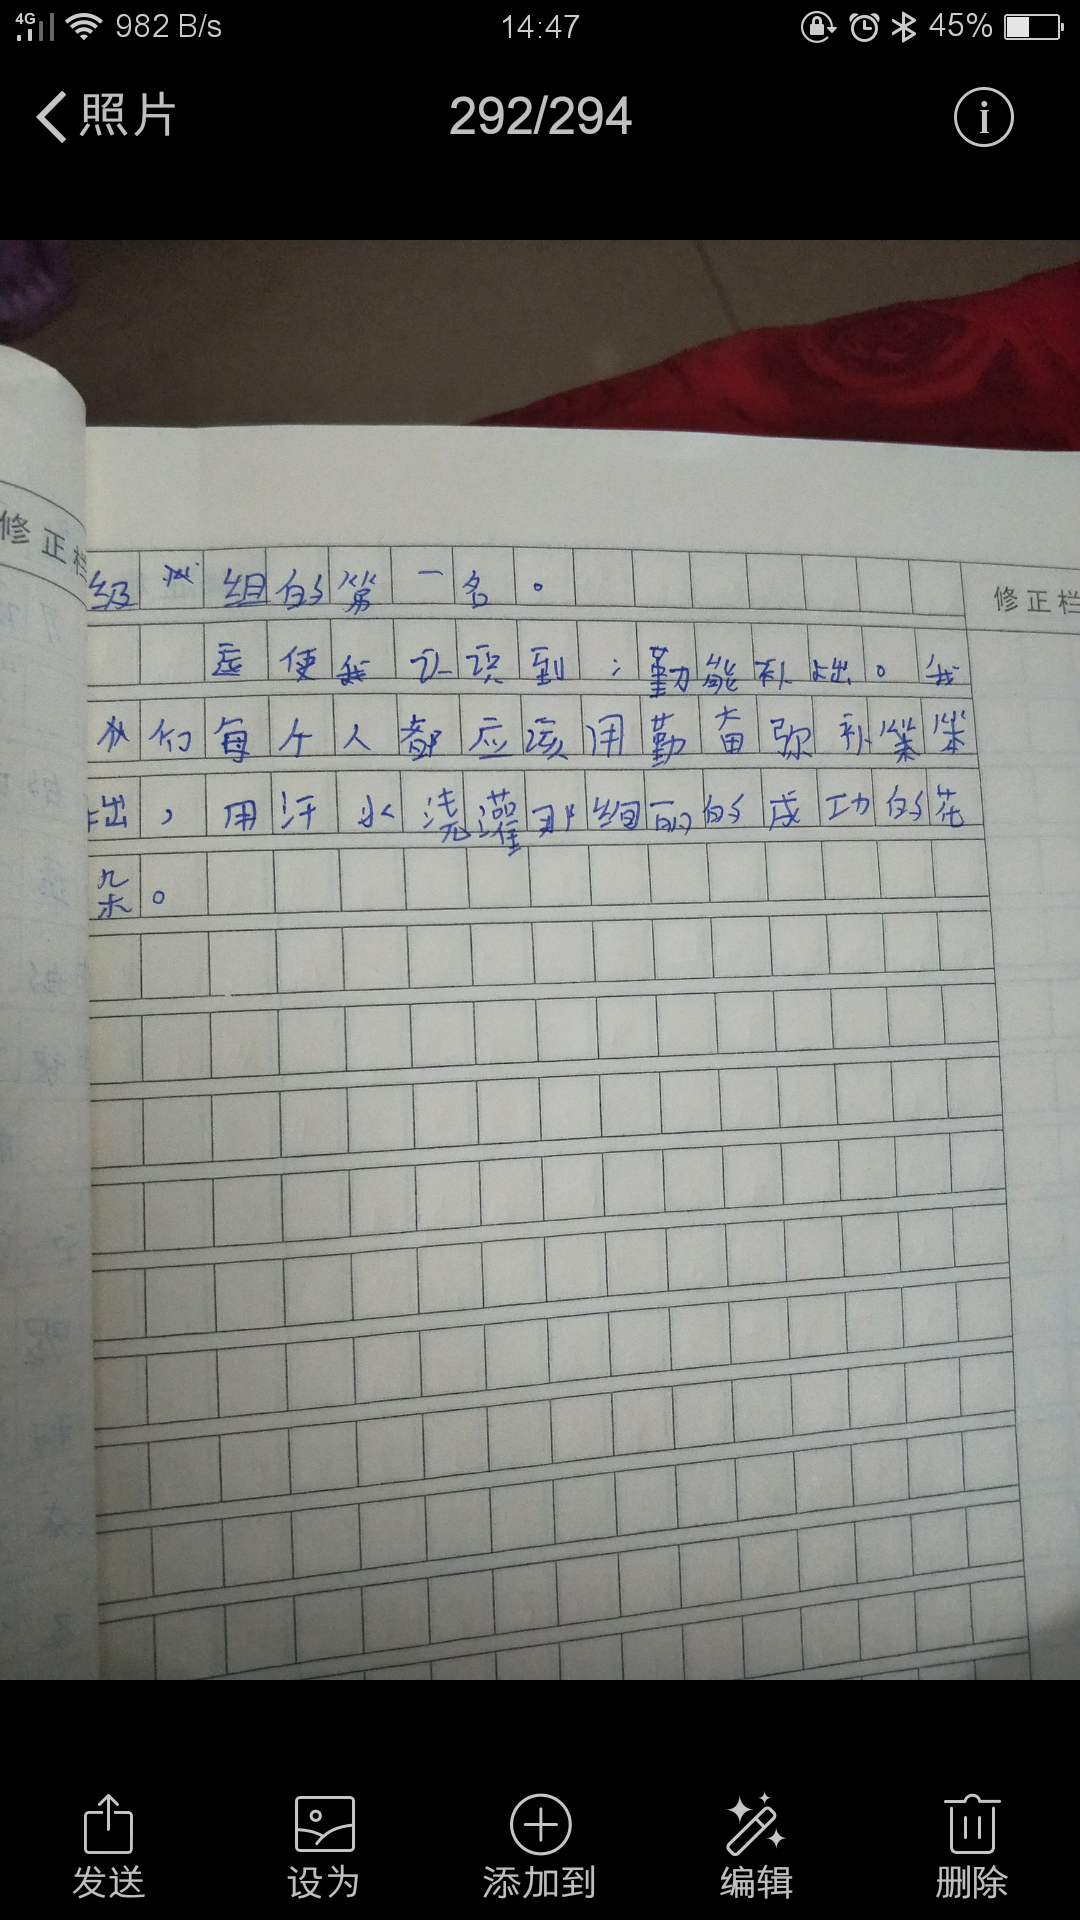 4G 982 B/s 14:47 45%
照片 292/294 i
修正栏
级 组的第一名。
修正栏
这使我认识到:勤能补拙。我
们每个人都应该用勤奋弥补笨
拙,用汗水浇灌那细而的成功的花
朵。
发送 设为 添加到 编辑 删除